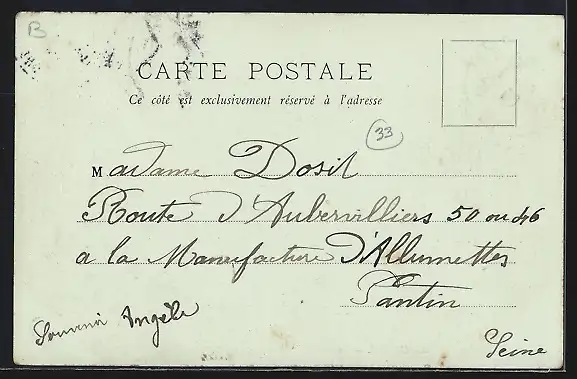 B
CARTE POSTALE
Ce côté est exclusivement réservé à l'adresse
33
Madame Dosil
Route d'Aubervilliers 50 ou 46
a la Manufacture d'Allumettes
Pantin
Souvenir Angèle
Seine